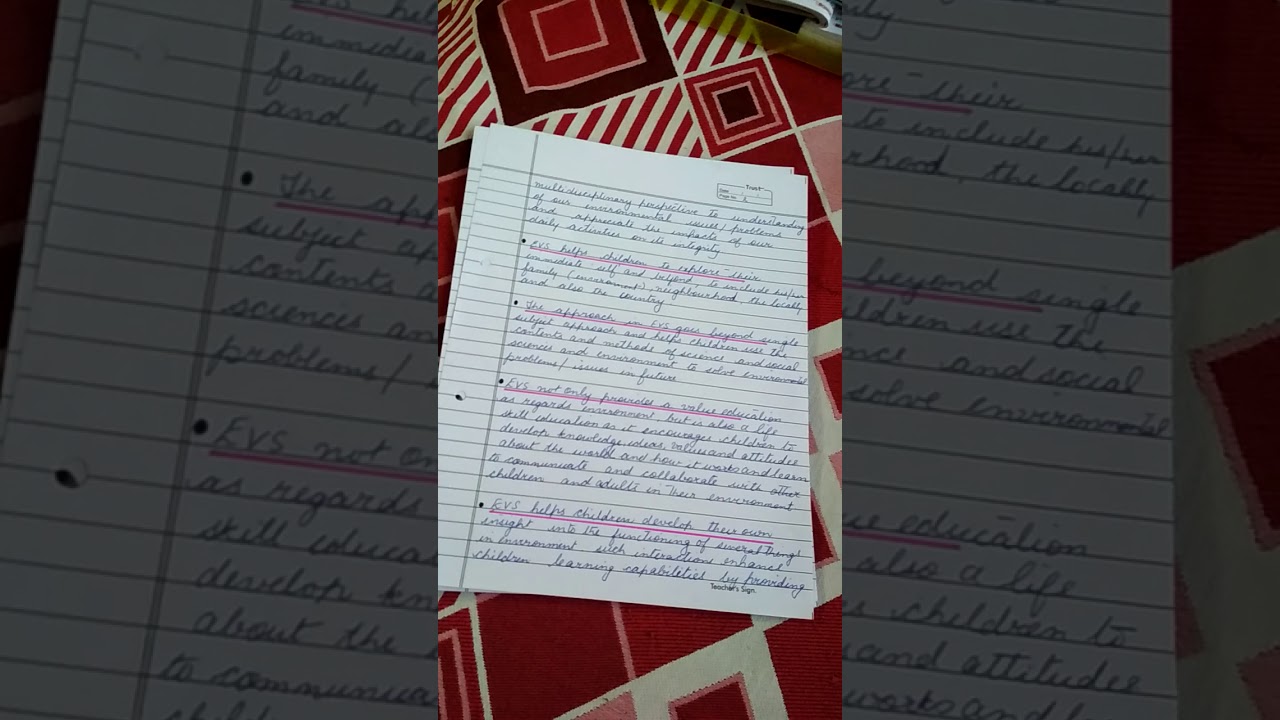 Trust
Date
Page No. 2
multidisciplinary perspective to understanding
of our environmental issues/problems
and appreciate the impacts of our
daily activities on its integrity
• EVS helps children to explore their
immediate self and beyond, to include his/her
family (environment), neighbourhood, the locally
and also the country
• The approach in EVS goes beyond single
subject approach and helps children use the
contents and methods of science and social
sciences and environment to solve environmental
problems/ issues in future
• EVS not only provides a value education
as regards environment but is also a life
skill education as it encourages children to
develop knowledge, ideas, values and attitudes
about the world and how it works and learn
to communicate and collaborate with other
children and adults in their environment
• EVS helps children develop their own
insight into the functioning of several things
in environment such interactions enhance
children learning capabilities by providing
Teacher's Sign.